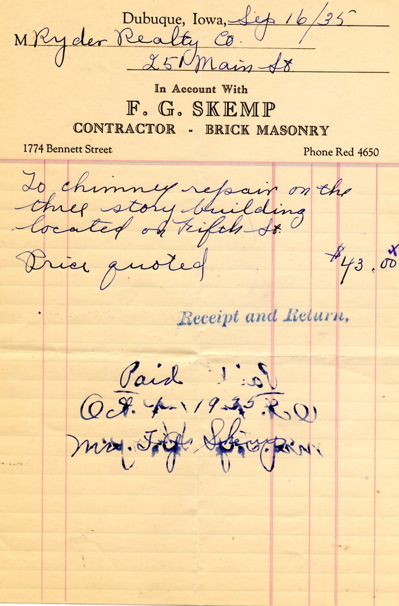 Dubuque, Iowa, Sep 16/35
M Ryder Realty Co.
251 Main St
In Account With
F. G. SKEMP
CONTRACTOR - BRICK MASONRY
1774 Bennett Street Phone Red 4650
To chimney repair on the
three story building
located on Fifth St.
Price quoted $43.00 x
Receipt and Return.
Paid
Oct. 1935
Mrs. F. G. Skemp